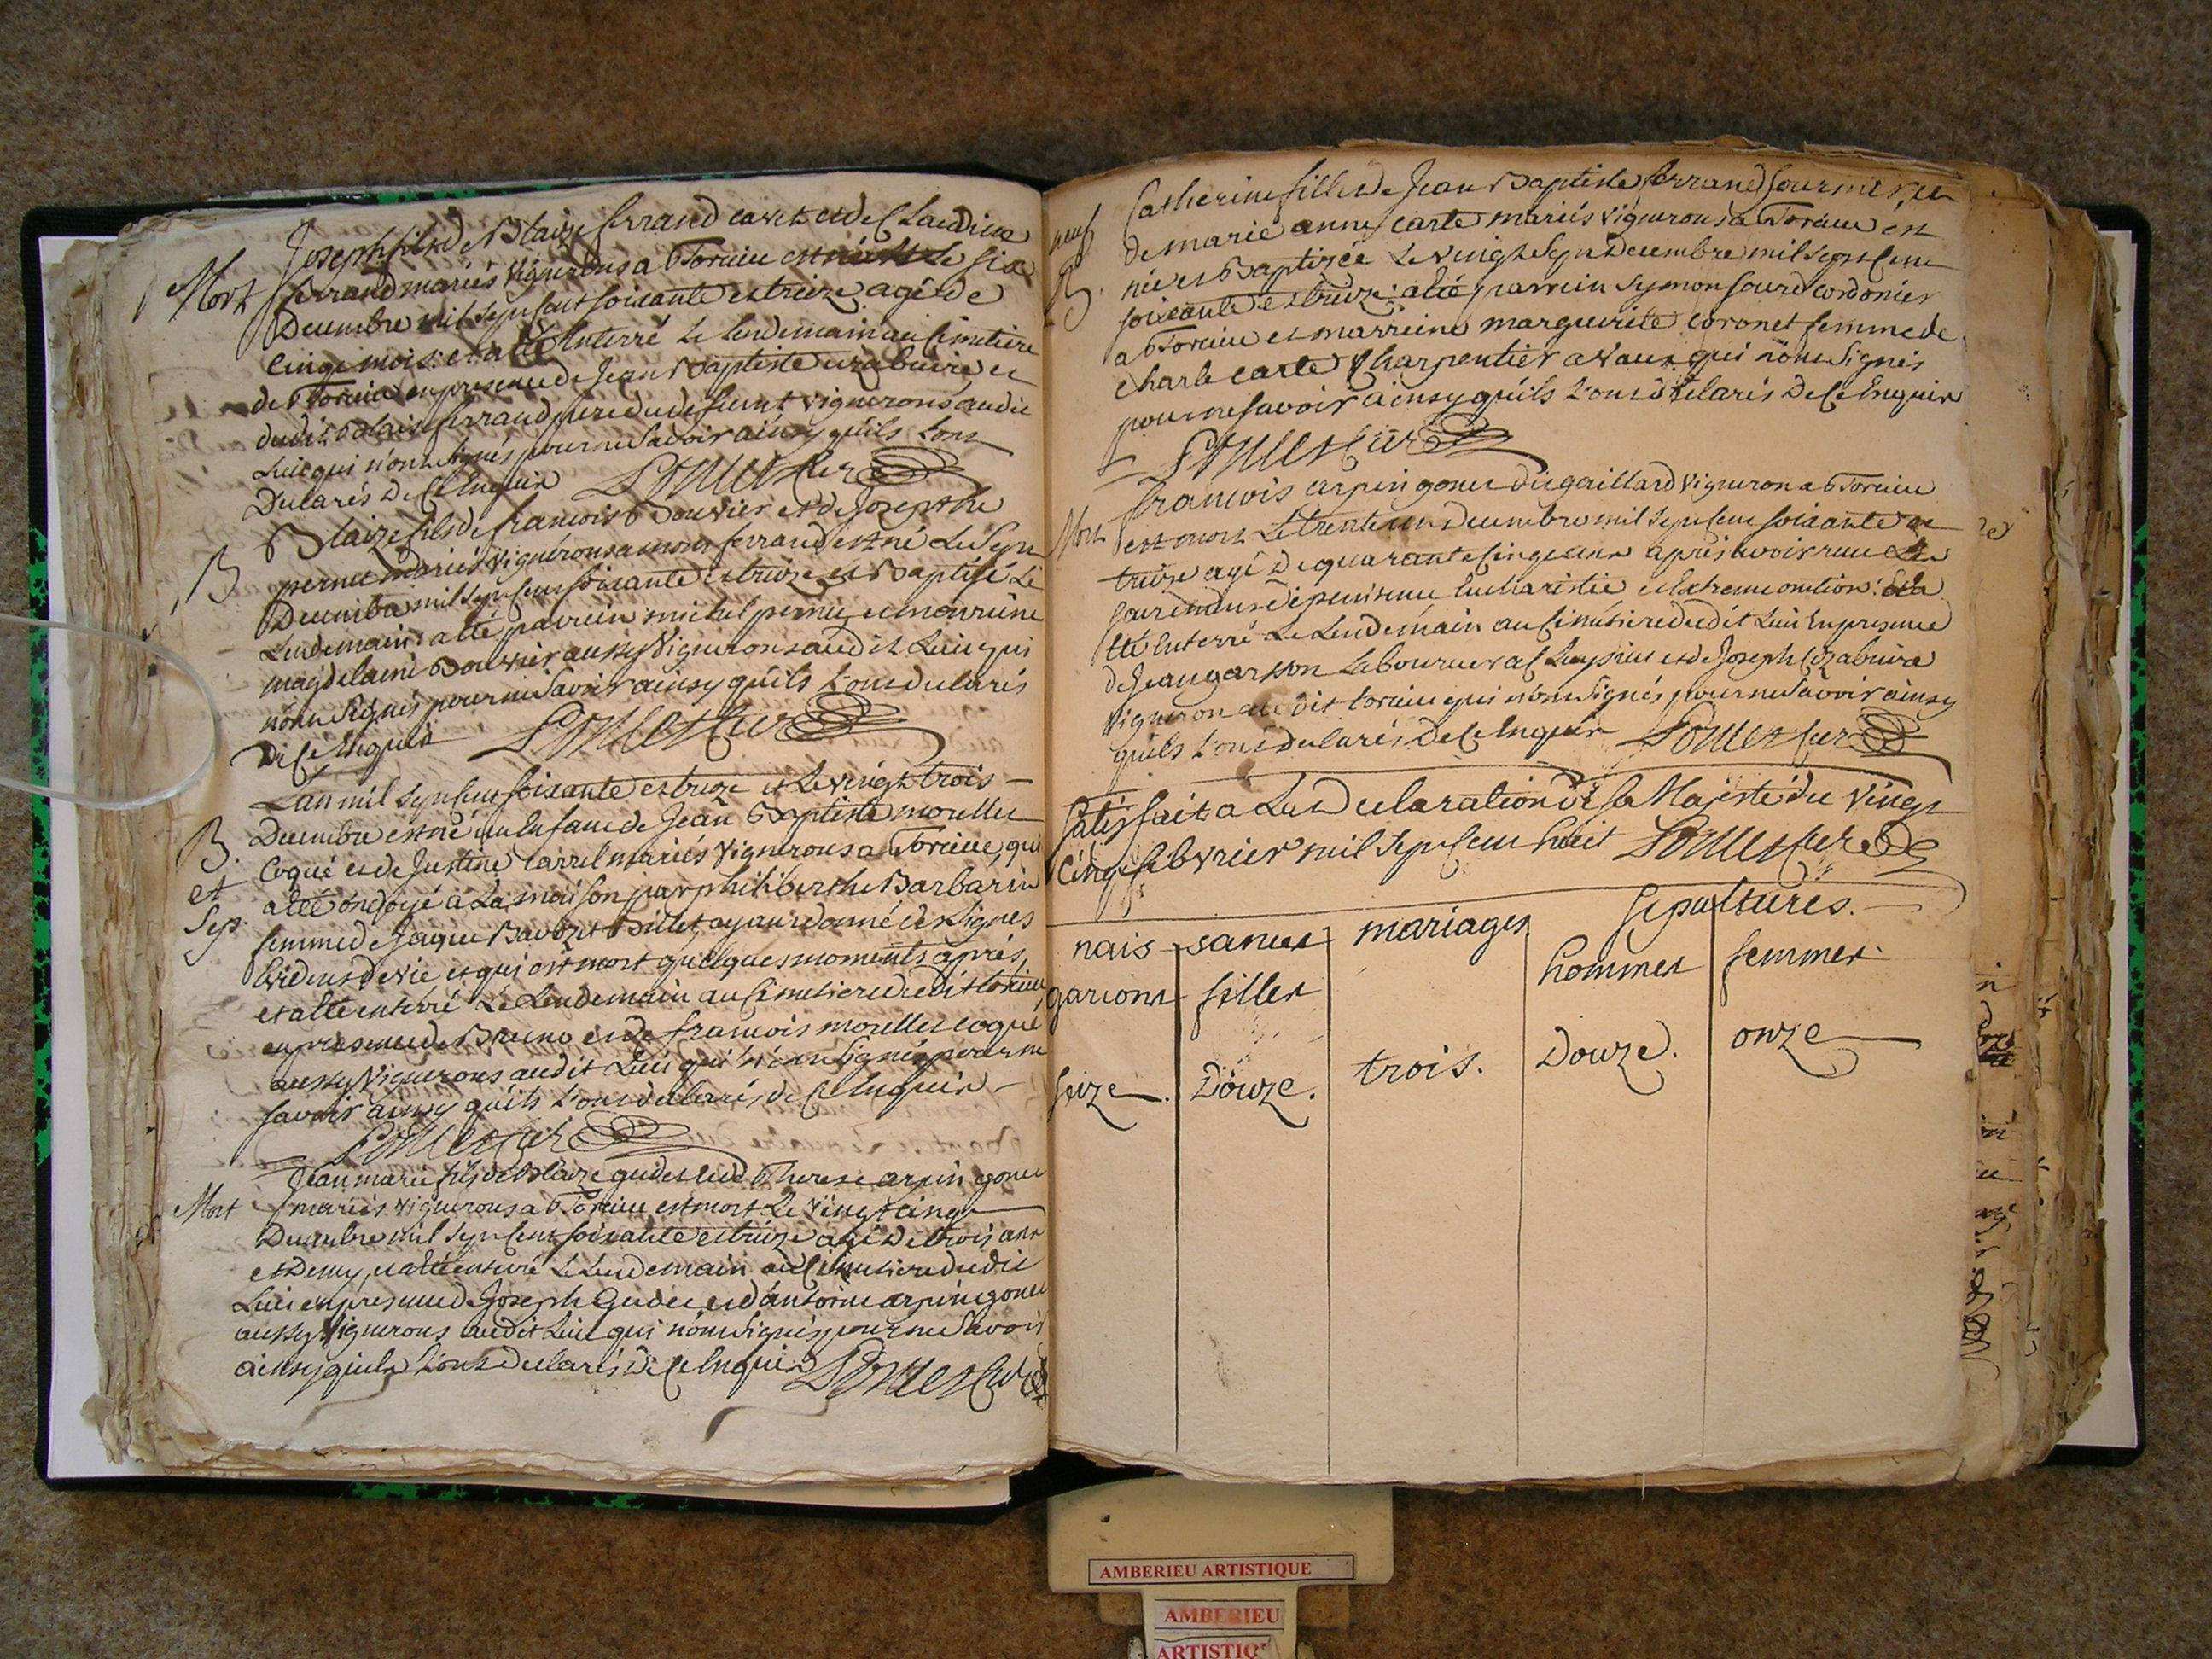 Joseph fils de Blaize ferrand et de Claudine
Mort ferrand mariés vignerons a Torcieu est mort Le six
Decembre mil sept cent soixante et treize agé de
Cinqs mois: et a eté Enterré Le Lendemain au Cimetiere
de Torcieu en presence de Jean Baptiste et
dudit Blaise ferrand pere du defunt vignerons audit
Lieu qui n'ont signés pour ne savoir ainsy quils L'ont
Declarés De Ce Enquis
Blaize fils de francois Bouvier et de Josephthe
B pernet mariés vignerons a mont ferrand est né Le Sept
Decembre mil sept cent soixante et treize et Baptisé Le
Lendemain: a eté parrein michel pernet et marreine
magdelaine Bouvier aussy Vignerons audit Lieu qui
n'ont Signés pour ne Savoir ainsy quils L'ont declarés
De Ce Enquis
L'an mil sept cent soixante et treize et Le vingt trois
B. Decembre est né un Enfant de Jean Baptiste morellet
et Coque et de Justine Carrel mariés Vignerons a Torcieu, qui
Sep. a eté ondoyé a La maison par philiberthe Barbarin
femme de Jaque Billet, ayant donné des Signes
Evidens de vie et qui est mort quelques moments aprés,
et a eté enterré Le Lendemain au Cimetiere dudit torcieu,
en presence de Bruno et de francois morellet coque
aussy Vignerons audit Lieu qui n'ont Signés pour ne
savoir ainsy quils L'ont declarés de Ce Enquis
Jean marie fils de Blaize gudet et de Therese arpin gonet
Mort mariés vignerons a Torcieu est mort Le Vingt cinq
Decembre mil sept cent soixante et treize agé De trois ans
et Demy, et a eté enterré Le Lendemain au Cimetiere dudit
Lieu en presence de Joseph Gudet et d'antoine arpin gonet
aussy Vignerons audit Lieu qui n'ont Signés pour ne Savoir
ainsy quils L'ont Declarés De Ce Enquis
Catherine fille de Jean Baptiste ferrand fournier, et
neuf de marie anne carte mariés vignerons a Torcieu est
B. née et Baptizée Le vingt Sept Decembre mil sept Cent
soixante et treize: a eté parrein Symon sourd cordonier
a Torcieu et marreine marguerite coronet femme de
Charle carte Charpentier a Vaux qui n'ont Signés
pour ne savoir ainsy quils L'ont Declarés De Ce Enquis
francois arpin gonet dit gaillard Vigneron a Torcieu
Mort est mort Le trente un Decembre mil sept cent soixante et
treize agé De quarante Cinq ans aprés avoir recu Les
sacremens de penitence Eucharistie et Extreme onction: Et a
eté Enterré Le Lendemain au Cimetiere dudit Lieu En presence
de Jean garson Laboureur a et de Joseph
vigneron audit torcieu qui n'ont Signés pour ne Savoir ainsy
quils L'ont declarés De Ce Enquis
Satisfait a La Declaration de sa Majesté du Vingt
Cinq febvrier mil Sept Cent huit
nais - sances mariages Sepultures.
garcons filles hommes femmes
seize. Douze. trois. Douze. onze
AMBERIEU ARTISTIQUE
AMBERIEU